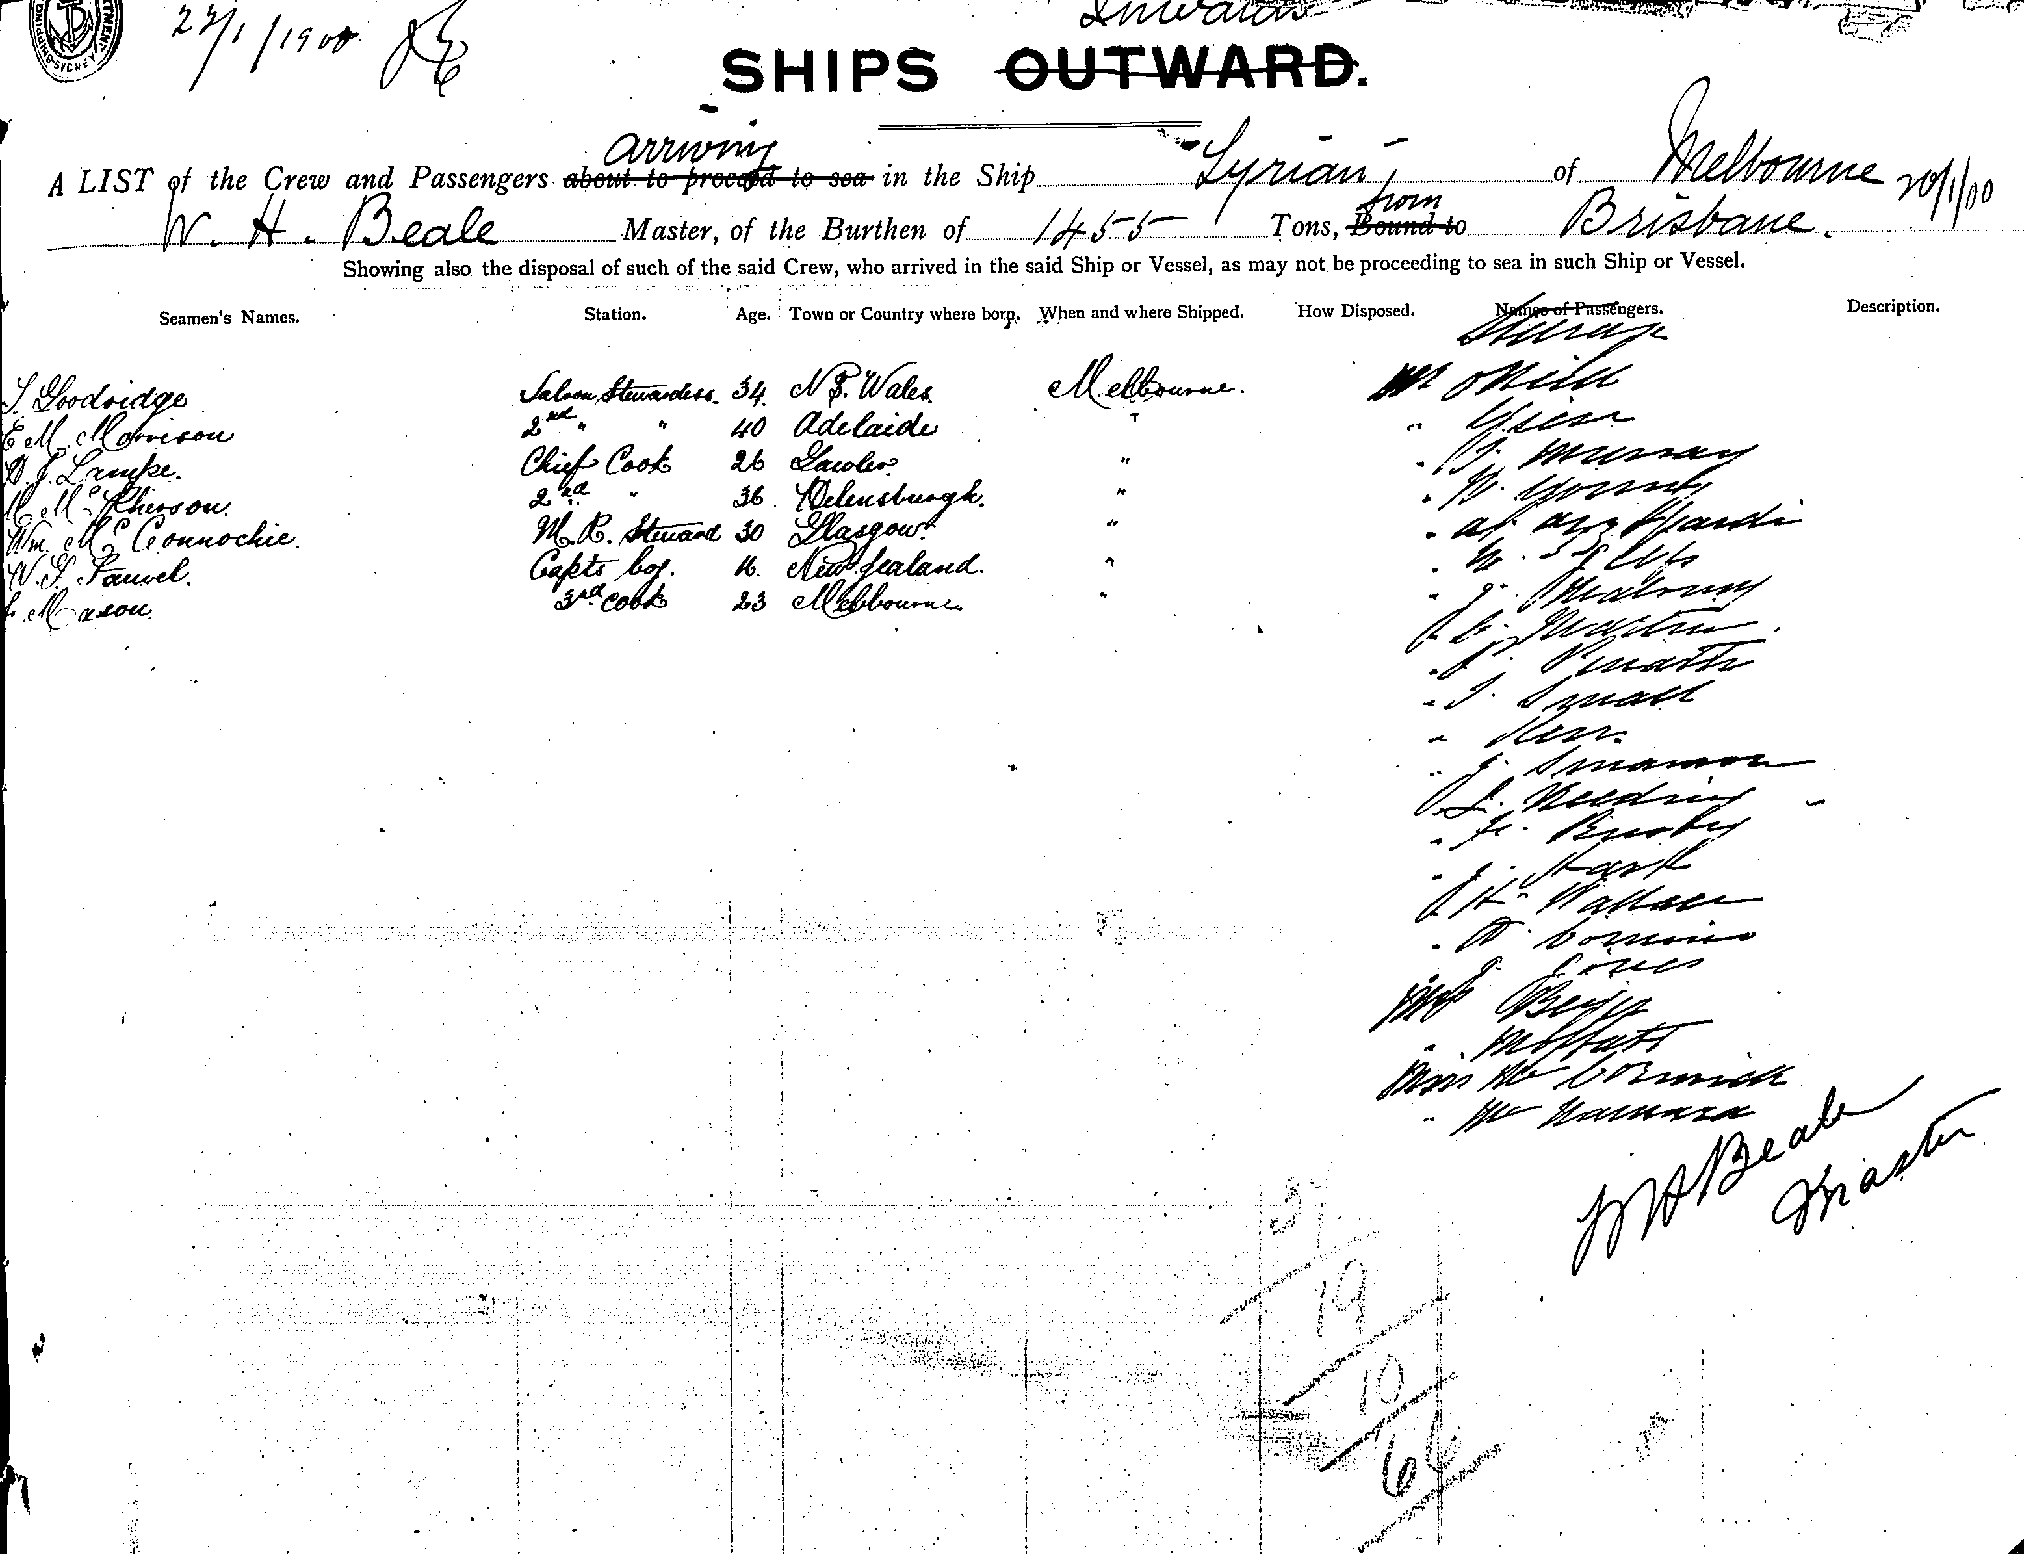 22/1/1900
Inwards
SHIPS OUTWARD.
arriving
A LIST of the Crew and Passengers about to proceed to sea in the Ship "Syrian" of Melbourne 20/1/00
from
W. H. Beale Master, of the Burthen of 1455 Tons, Bound to Brisbane.
Showing also the disposal of such of the said Crew, who arrived in the said Ship or Vessel, as may not be proceeding to sea in such Ship or Vessel.
Seamen's Names. Station. Age. Town or Country where born. When and where Shipped. How Disposed. Names of Passengers. Description.
Steerage
S. Goodridge Saloon Stewardess. 34. N. S. Wales. Melbourne. Mr
E M. Morrison 2nd " " 40 Adelaide "
Lampe. Chief Cook 26 Gawler. " " Murray
McPherson. 2nd " 36 Helensburgh. " " W. Young
Wm. McConnochie. M. R. Steward 30 Glasgow. " "
W. S. Fauvel. Capts boy. 16. New Zealand. " "
Mason. 3rd Cook 23 Melbourne. " " J.
" C. Martin.
"
" J. Small
" Kerr.
" J.
" J.
" Busby
" J. Hart
" H. Wallace
" W.
J. Jones
Mrs
" Moffatt
Miss McCormick
" McNamara
W H Beale
Master
37
19
10
66